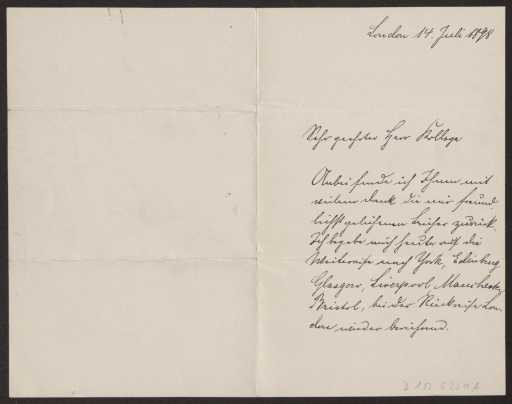 London 14. Juli 1898
Sehr geehrter Herr Kollege
Anbei sende ich Ihnen mit
vielem Dank die mir freund
lichst geliehenen Bücher zurück.
Ich begebe mich heute auf die
Weiterreise nach York, Edinburg
Glasgow, Liverpool, Manchester,
Bristol, bei der Rückreise Lon-
don wieder berührend.